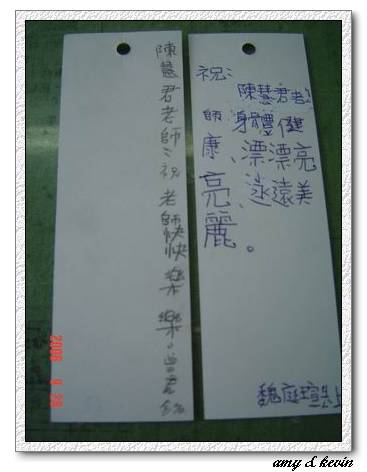 陳慧君老師:祝老師快快樂樂。
祝:
陳慧君老
師身體健
康、漂漂亮
亮、永遠美
麗。
魏庭瑄上
amy & kevin